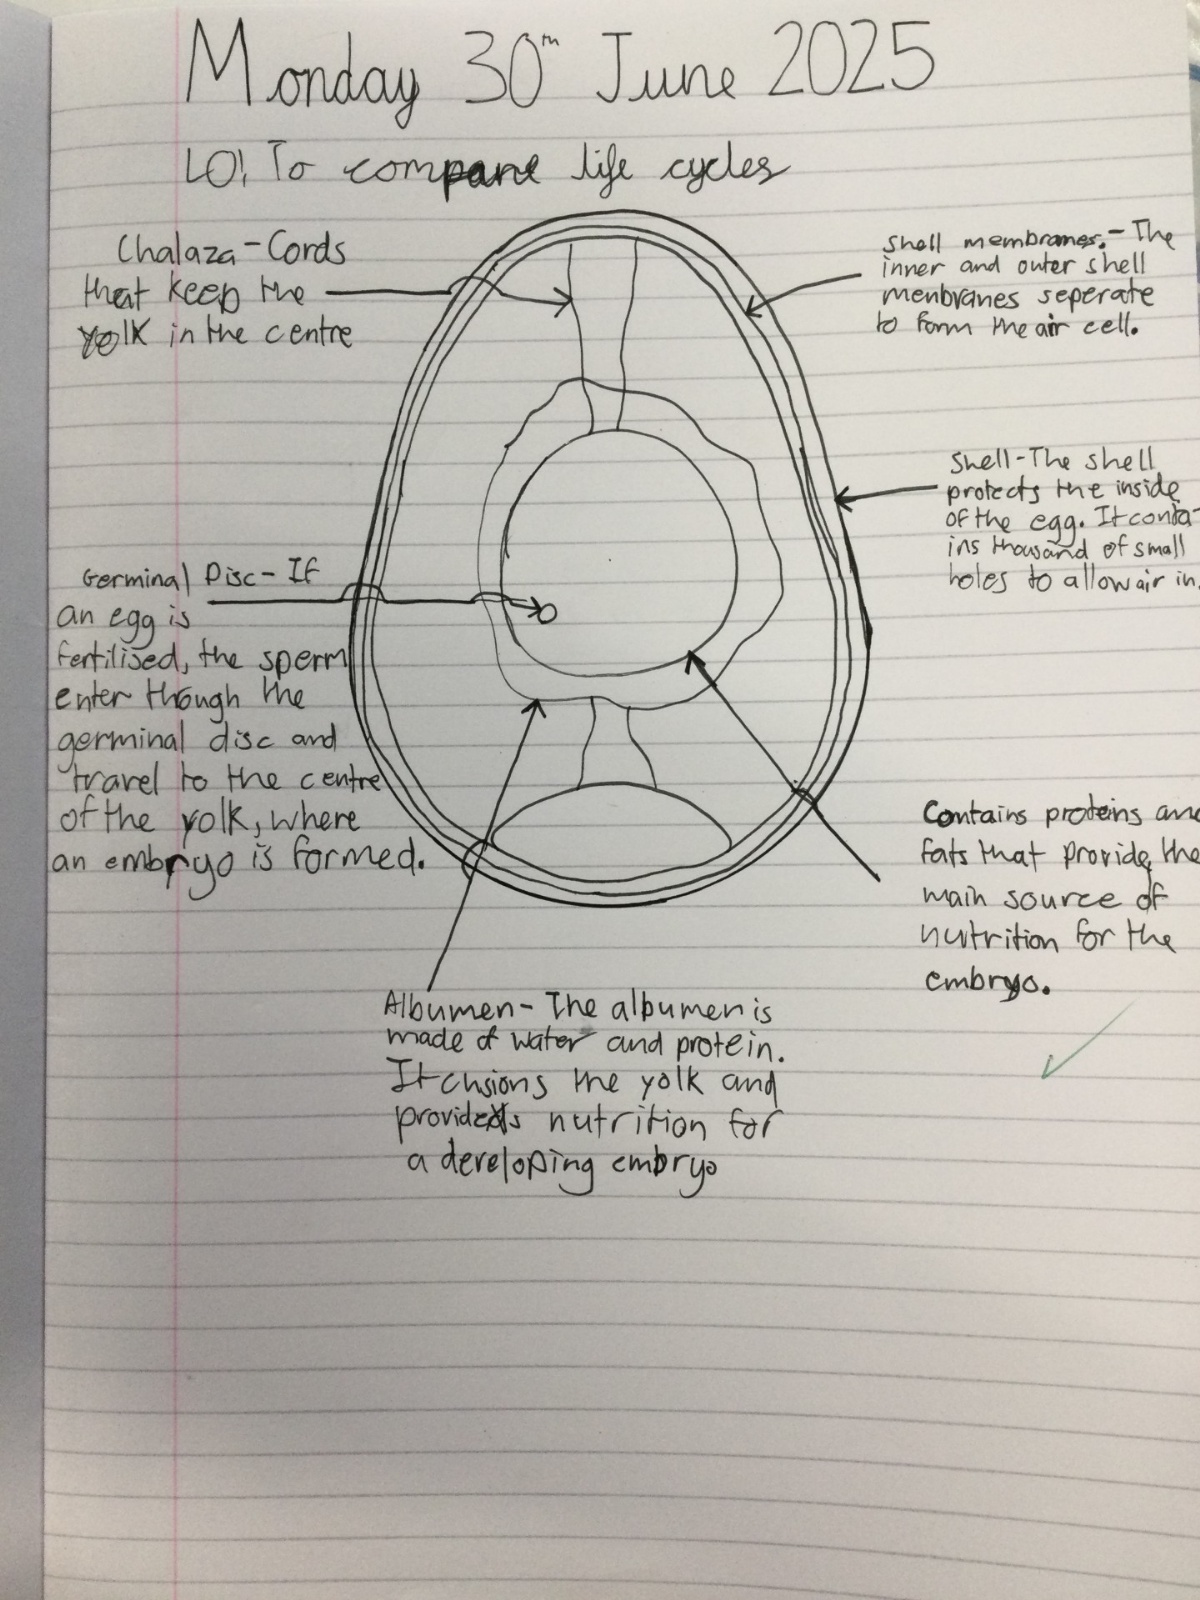 Monday 30th June 2025
LO! To compare life cycles
Chalaza - Cords
that keep the
yolk in the centre
Shell membranes. - The
inner and outer shell
menbranes seperate
to form the air cell.
Shell - The shell
protects the inside
of the egg. It conta-
ins thousand of small
holes to allow air in.
Germinal Disc - If
an egg is
fertilised, the sperm
enter though the
germinal disc and
travel to the centre
of the yolk, where
an embryo is formed.
Contains proteins and
fats that provide the
main source of
nutrition for the
embryo.
Albumen - The albumen is
made of water and protein.
It chsions the yolk and
provides nutrition for
a developing embryo